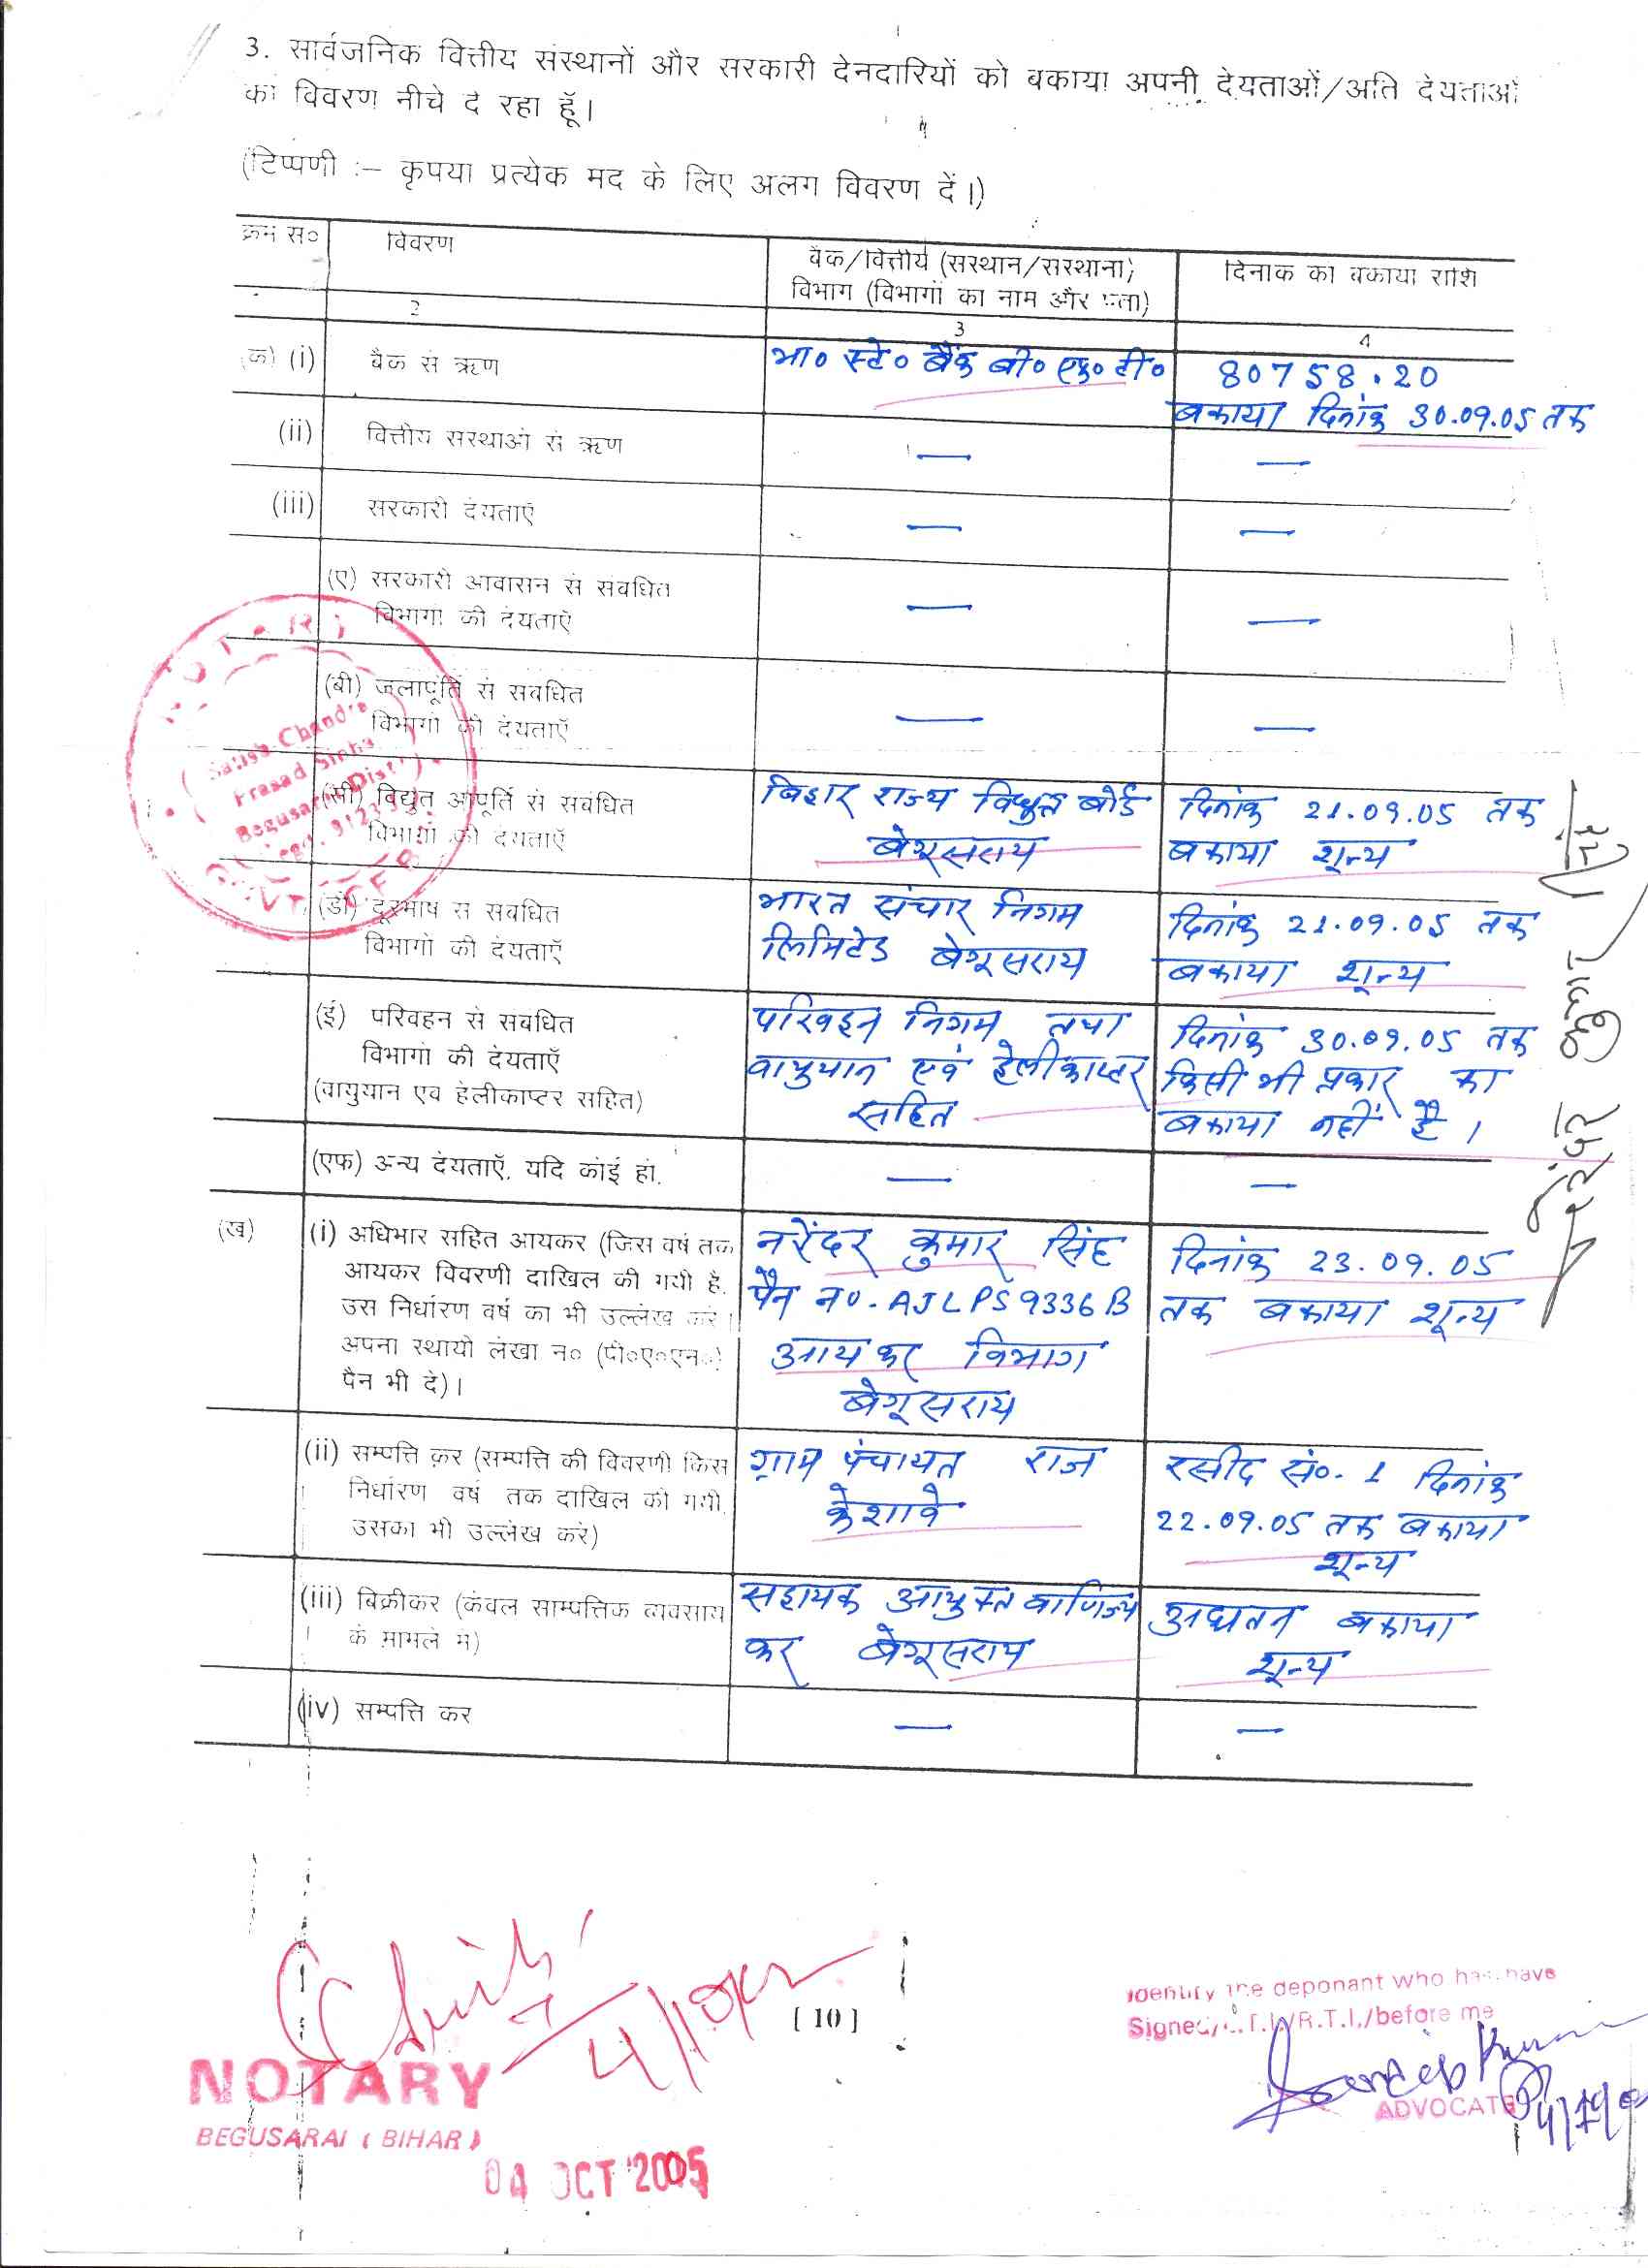 3. सार्वजनिक वित्तीय संस्थानों और सरकारी देनदारियों को बकाया अपनी देयताओं/अति देयताओं
का विवरण नीचे दे रहा हूँ।
(टिप्पणी :– कृपया प्रत्येक मद के लिए अलग विवरण दें।)
क्रम स० विवरण बैंक/वित्तीय (संस्थान/संस्थानों) दिनांक का बकाया राशि
विभाग (विभागों का नाम और पता)
2 3 4
(क) (i) बैंक से ऋण भा० स्टे० बैंक बी० एफ० टी० 80758.20
बकाया दिनांक 30.09.05 तक
(ii) वित्तीय संस्थाओं से ऋण — —
(iii) सरकारी देयताएँ — —
(ए) सरकारी आवासन से संबंधित
विभागों की देयताएँ — —
(बी) जलापूर्ति से संबंधित
विभागों की देयताएँ — —
(सी) विद्युत आपूर्ति से संबंधित बिहार राज्य विद्युत बोर्ड दिनांक 21.09.05 तक
विभागों की देयताएँ बेगूसराय बकाया शून्य
(डी) दूरभाष से संबंधित भारत संचार निगम दिनांक 21.09.05 तक
विभागों की देयताएँ लिमिटेड बेगूसराय बकाया शून्य
(ई) परिवहन से संबंधित परिवहन निगम तथा दिनांक 30.09.05 तक
विभागों की देयताएँ वायुयान एवं हेलीकाप्टर किसी भी प्रकार का
(वायुयान एवं हेलीकाप्टर सहित) सहित बकाया नहीं है।
(एफ) अन्य देयताएँ, यदि कोई हो. — —
(ख) (i) अधिभार सहित आयकर (जिस वर्ष तक नरेंदर कुमार सिंह दिनांक 23.09.05
आयकर विवरणी दाखिल की गयी है, पैन न०. AJLPS9336B तक बकाया शून्य
उस निर्धारण वर्ष का भी उल्लेख करें।
अपना स्थायी लेखा न० (पी०ए०एन०) आयकर विभाग
पैन भी दें)। बेगूसराय
(ii) सम्पत्ति कर (सम्पत्ति की विवरणी किस ग्राम पंचायत राज रसीद सं०. 1 दिनांक
निर्धारण वर्ष तक दाखिल की गयी, केशावे 22.09.05 तक बकाया
उसका भी उल्लेख करें) शून्य
(iii) बिक्रीकर (केवल साम्पत्तिक व्यवसाय सहायक आयुक्त वाणिज्य अद्यतन बकाया
के मामले में) कर बेगूसराय शून्य
(iv) सम्पत्ति कर — —
नरेंदर कुमार सिंह
NOTARY
Satish Chandra
Prasad Sinha
Begusarai Dist.
GOVT.
4/10/05
[ 10 ]
NOTARY
BEGUSARAI ( BIHAR )
04 OCT 2005
Identify the deponant who has have
Signed/L.T.I./R.T.I./before me
ADVOCATE